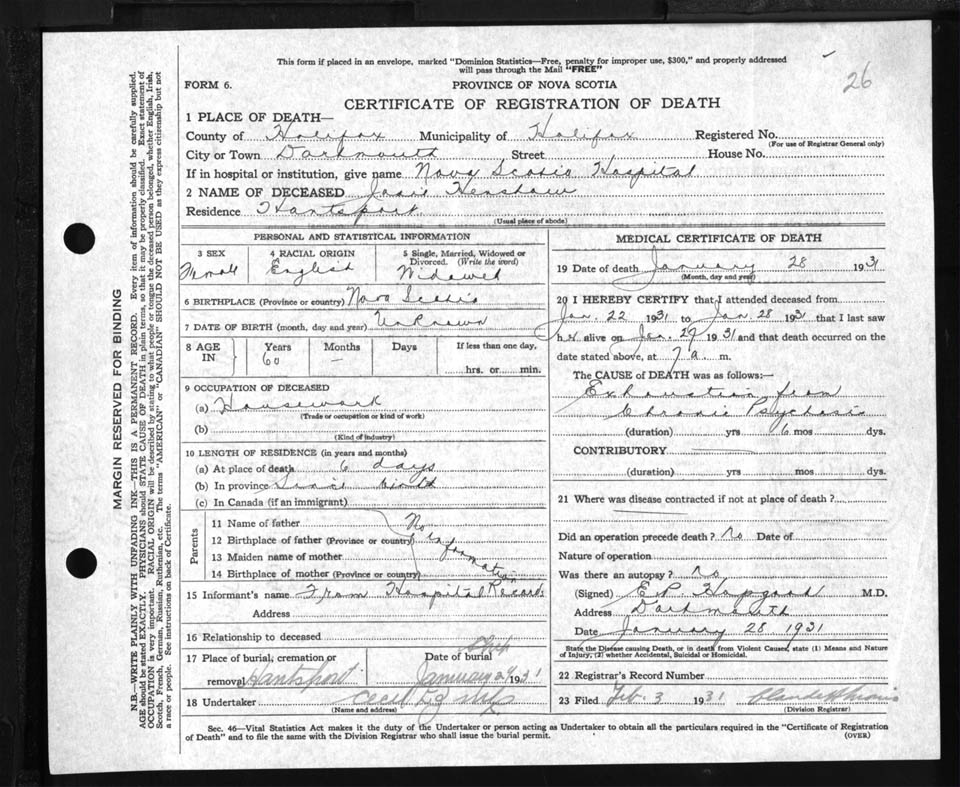 This form if placed in an envelope, marked "Dominion Statistics—Free, penalty for improper use, $300," and properly addressed
will pass through the Mail "FREE"
26
FORM 6.
PROVINCE OF NOVA SCOTIA
CERTIFICATE OF REGISTRATION OF DEATH
1 PLACE OF DEATH—
County of Halifax Municipality of Halifax Registered No.
(For use of Registrar General only)
City or Town Dartmouth Street House No.
If in hospital or institution, give name Nova Scotia Hospital
2 NAME OF DECEASED Henshaw
Residence Hantsport
(Usual place of abode)
PERSONAL AND STATISTICAL INFORMATION
3 SEX
Female
4 RACIAL ORIGIN
English
5 Single, Married, Widowed or
Divorced. (Write the word)
Widowed
6 BIRTHPLACE (Province or country) Nova Scotia
7 DATE OF BIRTH (month, day and year) Unknown
8 AGE IN
Years
60
Months
—
Days
If less than one day,
hrs. or min.
9 OCCUPATION OF DECEASED
(a) Housework
(Trade or occupation or kind of work)
(b)
(Kind of industry)
10 LENGTH OF RESIDENCE (in years and months)
(a) At place of death 6 days
(b) In province Since birth
(c) In Canada (if an immigrant)
Parents
11 Name of father
12 Birthplace of father (Province or country)
13 Maiden name of mother
14 Birthplace of mother (Province or country)
No information
15 Informant's name From Hospital Records
Address
16 Relationship to deceased
17 Place of burial, cremation or
removal Hantsport
Ship
Date of burial
January 1931
18 Undertaker Cecil
(Name and address)
MEDICAL CERTIFICATE OF DEATH
19 Date of death January 28 1931
(Month, day and year)
20 I HEREBY CERTIFY that I attended deceased from
Jan. 22 1931 to Jan 28 1931 that I last saw
her alive on Jan. 27 1931 and that death occurred on the
date stated above, at 7 a. m.
The CAUSE of DEATH was as follows:—
Exhaustion from
Chronic Psychosis
(duration) yrs 6 mos dys.
CONTRIBUTORY
(duration) yrs mos dys.
21 Where was disease contracted if not at place of death?
Did an operation precede death? No Date of
Nature of operation
Was there an autopsy? No
(Signed) E. P. Hopgood M.D.
Address Dartmouth
Date January 28 1931
State the Disease causing Death, or in death from Violent Causes, state (1) Means and Nature
of Injury, (2) whether Accidental, Suicidal or Homicidal.
22 Registrar's Record Number
23 Filed Feb. 3 1931
(Division Registrar)
Sec. 46—Vital Statistics Act makes it the duty of the Undertaker or person acting as Undertaker to obtain all the particulars required in the "Certificate of Registration
of Death" and to file the same with the Division Registrar who shall issue the burial permit.
(OVER)
MARGIN RESERVED FOR BINDING
N.B.—WRITE PLAINLY WITH UNFADING INK—THIS IS A PERMANENT RECORD. Every item of information should be carefully supplied.
AGE should be stated EXACTLY. PHYSICIANS should STATE CAUSE OF DEATH in plain terms, so that it may be properly classified. Exact statement of
OCCUPATION is very important. RACIAL ORIGIN will be described by stating to what people or tongue the deceased person belonged, whether English, Irish,
Scotch, French, German, Russian, Ruthenian, etc. The terms "AMERICAN" or "CANADIAN" SHOULD NOT BE USED as they express citizenship but not
a race or people. See instructions on back of Certificate.